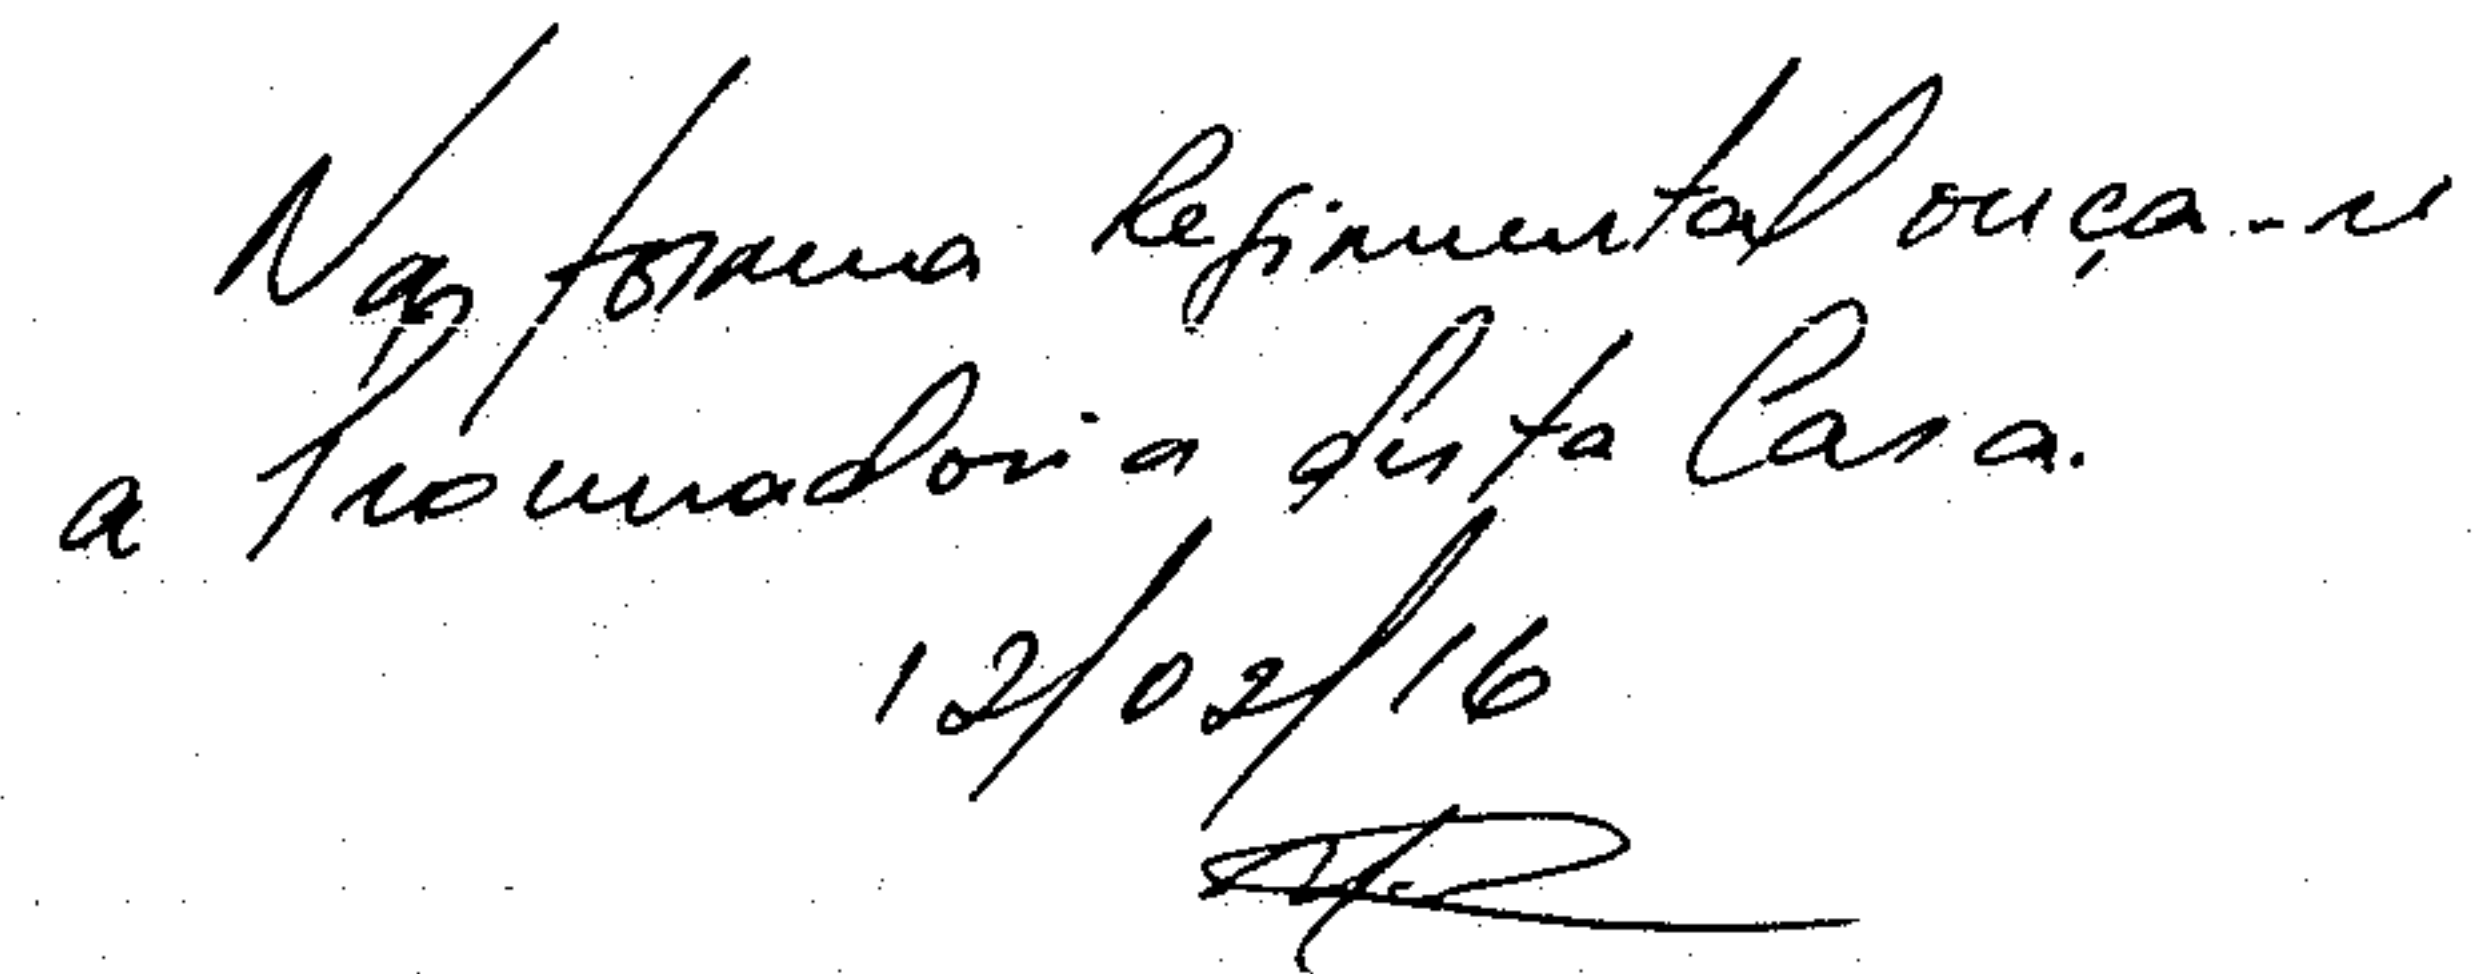 Na forma Regimental ouça-se
a Procuradoria desta Casa.
12/02/16